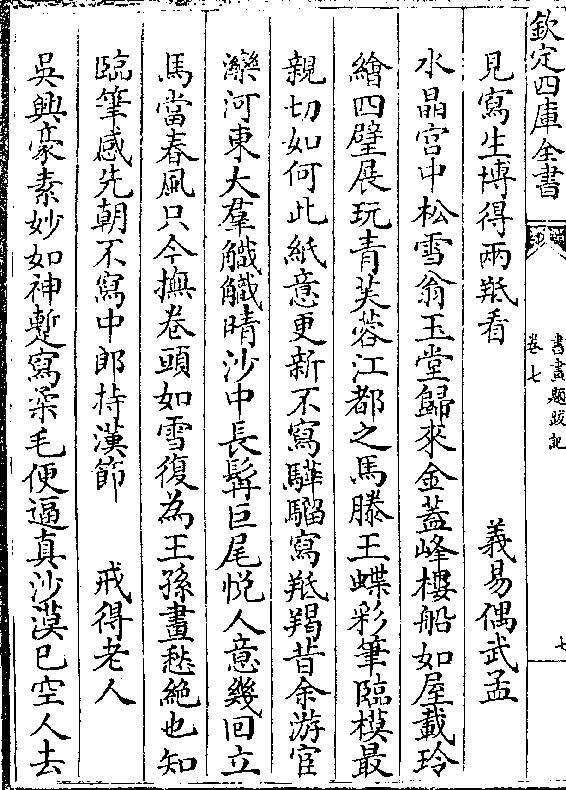 欽定四庫全書
書畫題跋記
卷七
七
見寫生博得兩羝看 義易偶武孟
水晶宫中松雪翁玉堂歸來金蓋峰樓船如屋載玲
繪四壁展玩青芙蓉江都之馬滕王蝶彩筆臨模最
親切如何此紙意更新不寫驊騮寫羝羯昔余游宦
灤河東大羣觽觽晴沙中長髯巨尾悦人意幾回立
馬當春風只今撫卷頭如雪復為王孫畫愁絶也知
臨筆感先朝不寫中郎持漢節 戒得老人
吳興豪素妙如神蹔寫柔毛便逼真沙漠已空人去